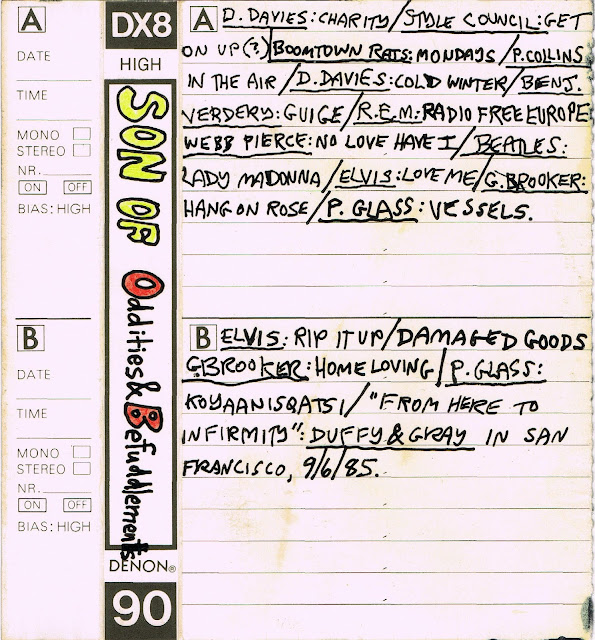 A
DATE
TIME
MONO
STEREO
NR.
ON OFF
BIAS: HIGH
B
DATE
TIME
MONO
STEREO
NR.
ON OFF
BIAS: HIGH
DX8
HIGH
SON OF Oddities & Befuddlements
DENON®
90
A D. DAVIES: CHARITY/STYLE COUNCIL: GET
ON UP(?)/BOOMTOWN RATS: MONDAYS/P. COLLINS
IN THE AIR/D. DAVIES: COLD WINTER/BENJ.
VERDERY: GUIGE/R.E.M: RADIO FREE EUROPE
WEBB PIERCE: NO LOVE HAVE I/BEATLES:
LADY MADONNA/ELVIS: LOVE ME/G. BROOKER:
HANG ON ROSE/P. GLASS: VESSELS.
B ELVIS: RIP IT UP/DAMAGED GOODS
G BROOKER: HOME LOVING/P. GLASS:
KOYAANISQATSI/"FROM HERE TO
INFIRMITY": DUFFY & GRAY IN SAN
FRANCISCO, 9/6/85.